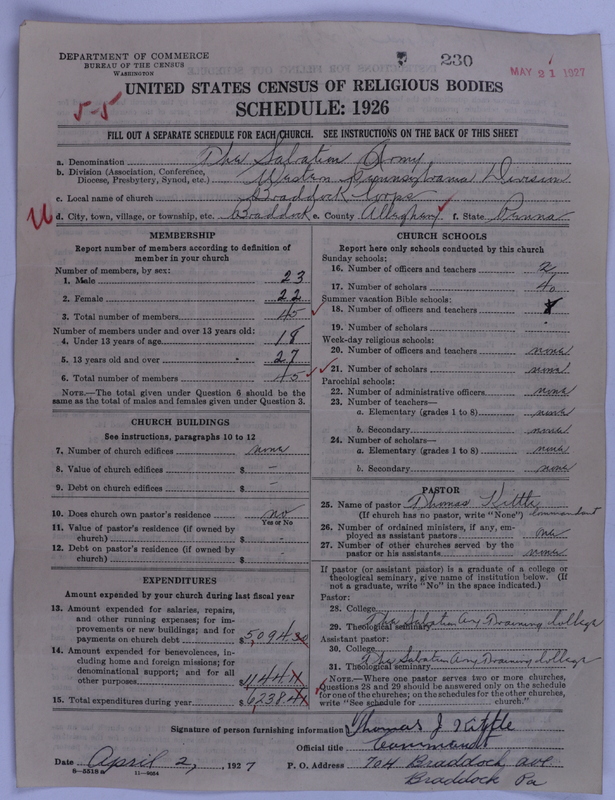 230
MAY 21 1927
DEPARTMENT OF COMMERCE
BUREAU OF THE CENSUS
WASHINGTON
5-5
UNITED STATES CENSUS OF RELIGIOUS BODIES
SCHEDULE: 1926
FILL OUT A SEPARATE SCHEDULE FOR EACH CHURCH. SEE INSTRUCTIONS ON THE BACK OF THIS SHEET
a. Denomination The Salvation Army
b. Division (Association, Conference, Diocese, Presbytery, Synod, etc.) Western Pennsylvania Division
c. Local name of church Braddock Corps
U d. City, town, village, or township, etc. Braddock e. County Allegheny f. State Penna
MEMBERSHIP
Report number of members according to definition of
member in your church
Number of members, by sex:
1. Male 23
2. Female 22
3. Total number of members 45
Number of members under and over 13 years old:
4. Under 13 years of age 18
5. 13 years old and over 27
6. Total number of members 45
NOTE.—The total given under Question 6 should be
same as the total of males and females given under Question 3.
CHURCH BUILDINGS
See instructions, paragraphs 10 to 12
7. Number of church edifices none
8. Value of church edifices $ -
9. Debt on church edifices $ -
10. Does church own pastor's residence no
Yes or No
11. Value of pastor's residence (if owned by
church) $ -
12. Debt on pastor's residence (if owned by
church) $ -
EXPENDITURES
Amount expended by your church during last fiscal year
13. Amount expended for salaries, repairs,
and other running expenses; for im-
provements or new buildings; and for
payments on church debt $ 5,094.30
14. Amount expended for benevolences, in-
cluding home and foreign missions; for
denominational support; and for all
other purposes $ 1144.11
15. Total expenditures during year $ 6,238.41
CHURCH SCHOOLS
Report here only schools conducted by this church
Sunday schools:
16. Number of officers and teachers 2
17. Number of scholars 40
Summer vacation Bible schools:
18. Number of officers and teachers
19. Number of scholars -
Week-day religious schools:
20. Number of officers and teachers none
21. Number of scholars none
Parochial schools:
22. Number of administrative officers none
23. Number of teachers—
a. Elementary (grades 1 to 8) none
b. Secondary none
24. Number of scholars—
a. Elementary (grades 1 to 8) none
b. Secondary none
PASTOR
25. Name of pastor Thomas Kittle
(If church has no pastor, write "None") Commandant
26. Number of ordained ministers, if any, em-
ployed as assistant pastors one
27. Number of other churches served by the
pastor as his assistants none
If pastor (or assistant pastor) is a graduate of a college or
theological seminary, give name of institution below. (If
not a graduate, write "No" in the space indicated.)
Pastor:
28. College
29. Theological seminary The Salvation Army Training College
Assistant pastor:
30. College
31. Theological seminary The Salvation Army Training College
NOTE.—Where one pastor serves two or more churches,
Questions 28 and 29 should be answered only on the schedule
for one of the churches; on the schedules for the other churches,
write "See schedule for church."
Signature of person furnishing information Thomas J Kittle
Official title Commandt
Date April 2, 1927 P. O. Address 704 Braddock ave
Braddock Pa
8-5518a 11-9064